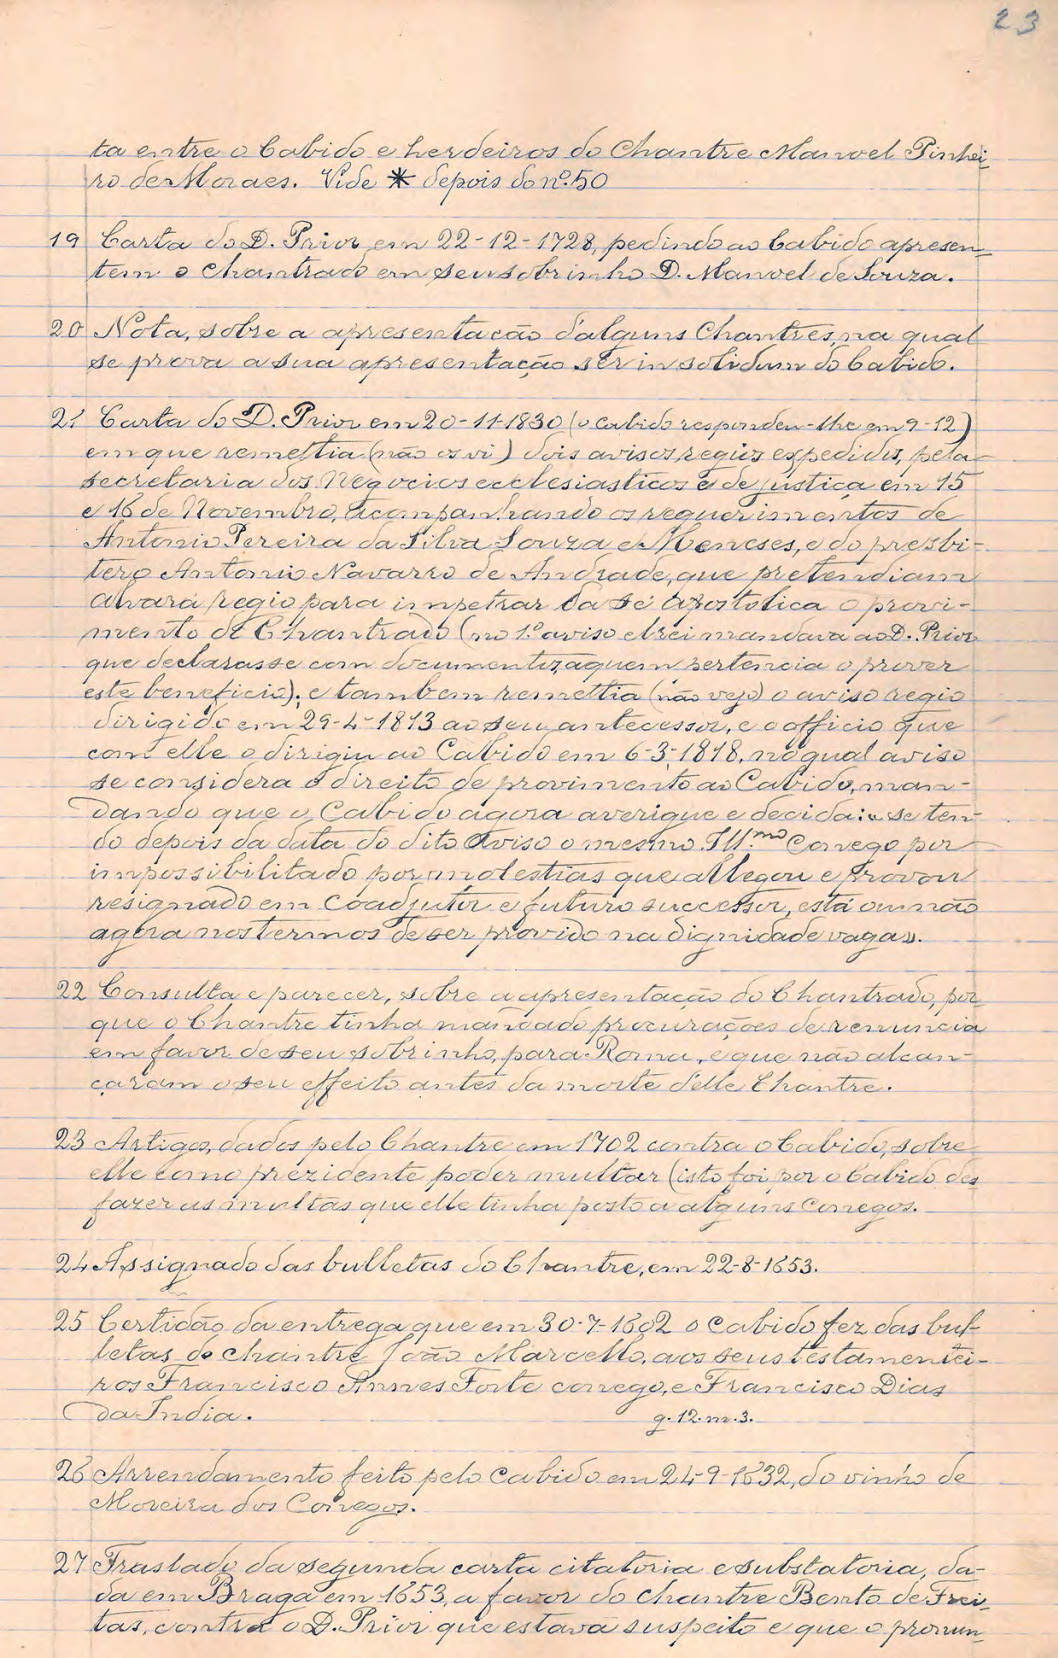 23
ta entre o Cabido e herdeiros do Chantre Manoel Pinhei
ro de Moraes. Vide * depois do nº. 50
19 Carta do D. Prior em 22-12-1728, pedindo ao Cabido apresen-
tem o chantrado em seu sobrinho D. Manoel de Souza.
20 Nota, sobre a apresentação d'alguns Chantres, na qual
se prova a sua apresentação ser in solidum do Cabido.
21 Carta do D. Prior em 20-11-1830 (o cabido respondeu-lhe em 9-12)
em que remettia (não os vi) dois avisos regios expedidos, pela
secretaria dos Negocios ecclesiasticos e de justiça em 15
e 16 de Novembro, acompanhando os requerimentos de
Antonio Pereira da Silva Souza e Meneses, e do presbi-
tero Antonio Navarro de Andrade, que pretendiam
alvará regio para impetrar da Sé apostolica o provi-
mento de Chantrado (no 1.º aviso elrei mandava ao D. Prior
que declarasse com documentos, a quem pertencia o prover
este beneficio); e tambem remettia (não vejo) o aviso regio
dirigido em 29-4-1813 ao seu antecessor, e o officio que
com elle o dirigiu ao Cabido em 6-3-1818, no qual aviso
se considera o direito de provimento ao Cabido, man-
dando que o Cabido agora averigue e decida: «se ten-
do depois da data do dito Aviso o mesmo Ill.mo Conego por
impossibilitado por molestias que allegou e provou
resignado em coadjutor e futuro successor, está ou não
agora nos termos de ser provido na dignidade vaga».
22 Consulta e parecer, sobre a apresentação do Chantrado, por
que o Chantre tinha mandado procurações de renuncia
em favor de seu sobrinho, para Roma, e que não alcan-
çaram o seu effeito antes da morte d'elle Chantre.
23 Artigos, dados pelo Chantre em 1702 contra o Cabido, sobre
elle como prezidente poder multar (isto foi por o Cabido des
fazer as multas que elle tinha posto a alguns conegos.
24 Assignado das bulletas do Chantre, em 22-8-1653.
25 Certidão da entrega que em 30-7-1602 o Cabido fez das bul-
letas do chantre João Marcello, aos seus testamentei-
ros Francisco Annes Forte conego, e Francisco Dias
da India. g. 12. m. 3.
26 Arrendamento feito pelo cabido em 24-9-1632, do vinho de
Moreira dos Conegos.
27 Traslado da segunda carta citatoria e substatoria, da-
da em Braga em 1653, a favor do chantre Bento de Frei-
tas, contra o D. Prior que estava suspeito e que o pronun-